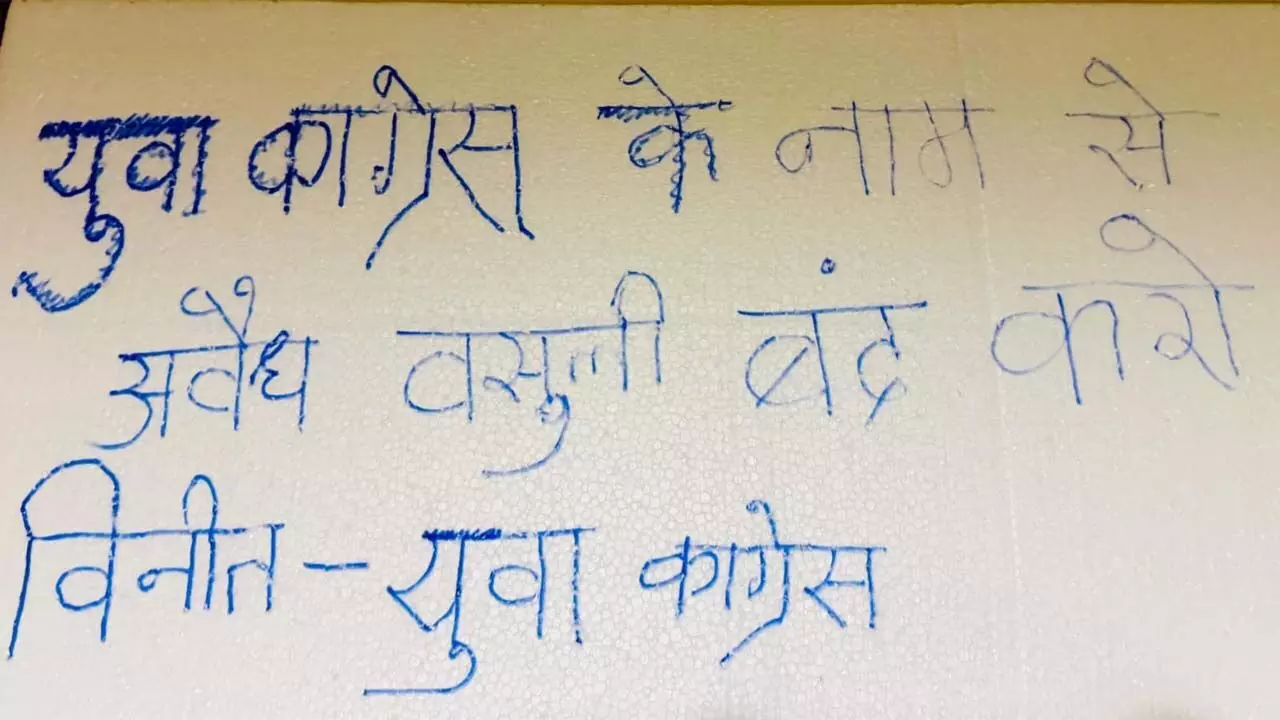 युवा काग्रेस के नाम से
अवैध वसुली बंद करो
विनीत - युवा काग्रेस